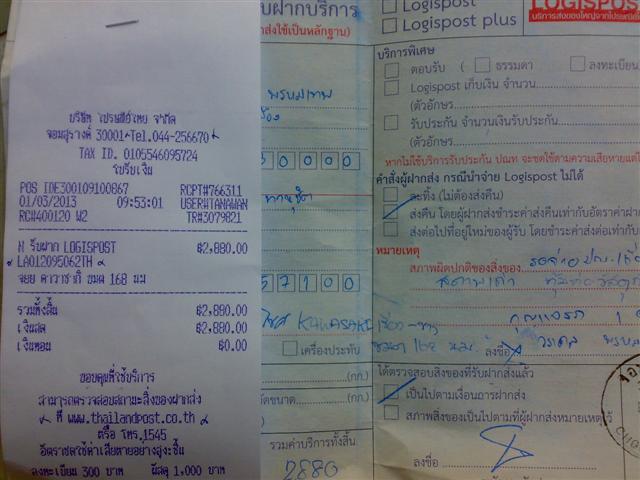 บริษัท ไปรษณีย์ไทย จำกัด
จอมสุรางค์ 30001 Tel.044-256670
TAX ID. 0105546095724
ใบรับเงิน
POS IDE300109100867 RCPT#766311
01/03/2013 09:53:01 USER#TANAWAN
RC#400120 W2 TR#3079821
N รับฝาก LOGISPOST ฿2,880.00
LA012095062TH
จยย คาวาซากิ ขนาด 168 มม
รวมทั้งสิ้น ฿2,880.00
เงินสด ฿2,880.00
เงินทอน ฿0.00
ขอบคุณที่ใช้บริการ
สามารถตรวจสอบสถานะสิ่งของฝากส่ง
ที่ www.thailandpost.co.th
หรือ โทร.1545
อัตราชดใช้ค่าเสียหายอย่างสูงชิ้น
ลงทะเบียน 300 บาท พัสดุ 1,000 บาท
รับฝากบริการ
ส่งใช้เป็นหลักฐาน)
0 0 0 0
5 7 1 0 0
KAWASAKI
เครื่องประทับ
(กก.)
(กก.)
รวมค่าบริการทั้งสิ้น
2880
Logispost
Logispost plus
LOGISPOS
บริการพิเศษ
ตอบรับ ( ธรรมดา ลงทะเบียน
Logispost เก็บเงิน จำนวน
(ตัวอักษร
รับประกัน จำนวนเงินรับประกัน
(ตัวอักษร
หากไม่ใช้บริการรับประกัน ปณท จะชดใช้ตามความเสียหายแต่ไ
คำสั่งผู้ฝากส่ง กรณีนำจ่าย Logispost ไม่ได้
ละทิ้ง (ไม่ต้องส่งคืน)
ส่งคืน โดยผู้ฝากส่งชำระค่าส่งคืนเท่ากับอัตราค่าฝา
ส่งต่อไปที่อยู่ใหม่ของผู้รับ โดยชำระค่าส่งต่อเท่ากับ
หมายเหตุ
สภาพผิดปกติของสิ่งของ
ลงชื่อ
ได้ตรวจสอบสิ่งของที่รับฝากส่งแล้ว
เป็นไปตามเงื่อนการฝากส่ง
สภาพสิ่งของเป็นไปตามที่ผู้ฝากส่งหมายเหตุไว้
ลงชื่อ